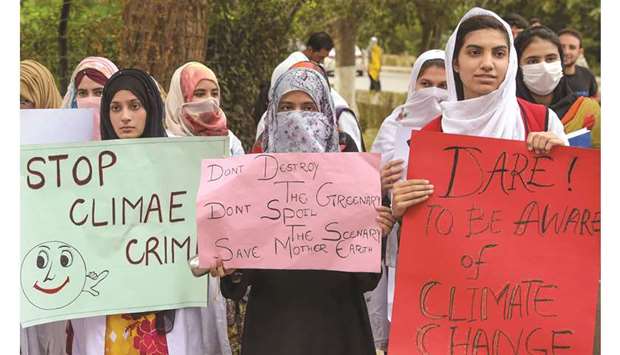 STOP
CLIMAE
CRIM
DONT DESTROY
THE GREENARY
DONT SPOIL
THE SCENARY
SAVE MOTHER EARTH
DARE!
TO BE AWARE
OF
CLIMATE
CHANGE